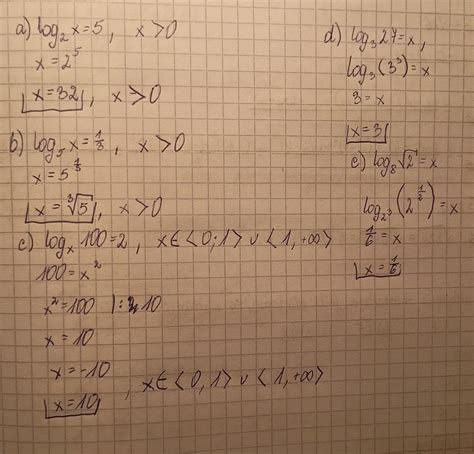 a) log₂x=5, x>0
x=2⁵
x=32, x>0
b) log₅x=⅓, x>0
x=5^⅓
x=∛5, x>0
c) logₓ100=2, x∈<0;1>∪<1,+∞>
100=x²
x²=100 |:10
x=10
x=-10
x=10, x∈<0,1>∪<1,+∞>
d) log₃27=x,
log₃(3³)=x
3=x
x=3
e) log₈√2=x
log₂³(2^½)=x
⅙=x
x=⅙